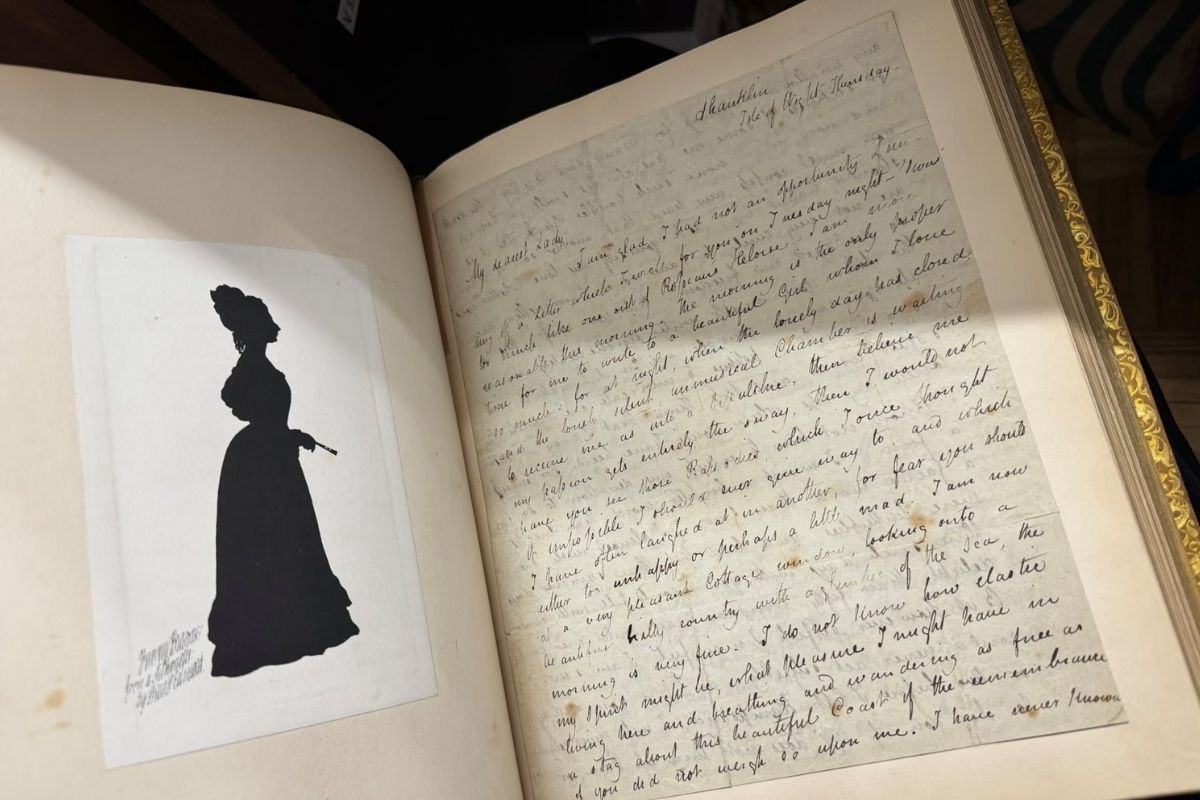 Fanny Brawne
from a silhouette
by Mons. Edouart
Shanklin
Isle of Wight Thursday-
My dearest Lady,
I am glad I had not an opportunity of sen-
ding off a Letter which I wrote for you on Tuesday night- 'twas
too much like one out of Rosseaus Heloise. I am more
reasonable this morning. The morning is the only proper
time for me to write to a beautiful Girl whom I love
so much: for at night, when the lonely day has closed
and the lonely, silent, unmusical Chamber is waiting
to receive me as into a Sepulchre, then believe me
my passion gets entirely the sway, then I would not
have you see those Rapsodies which I once thought
it impossible I should ever give way to and which
I have often laughed at in another, for fear you should
either too unhappy or perhaps a little mad. I am now
at a very pleasant Cottage window, looking onto a
beautiful hilly country with a glimpse of the sea, the
morning is very fine. I do not know how elastic
my spirit might be, what pleasure I might have in
living here and breathing and wandering as free as
a stag about this beautiful Coast if the remembrance
of you did not weigh so upon me. I have never known